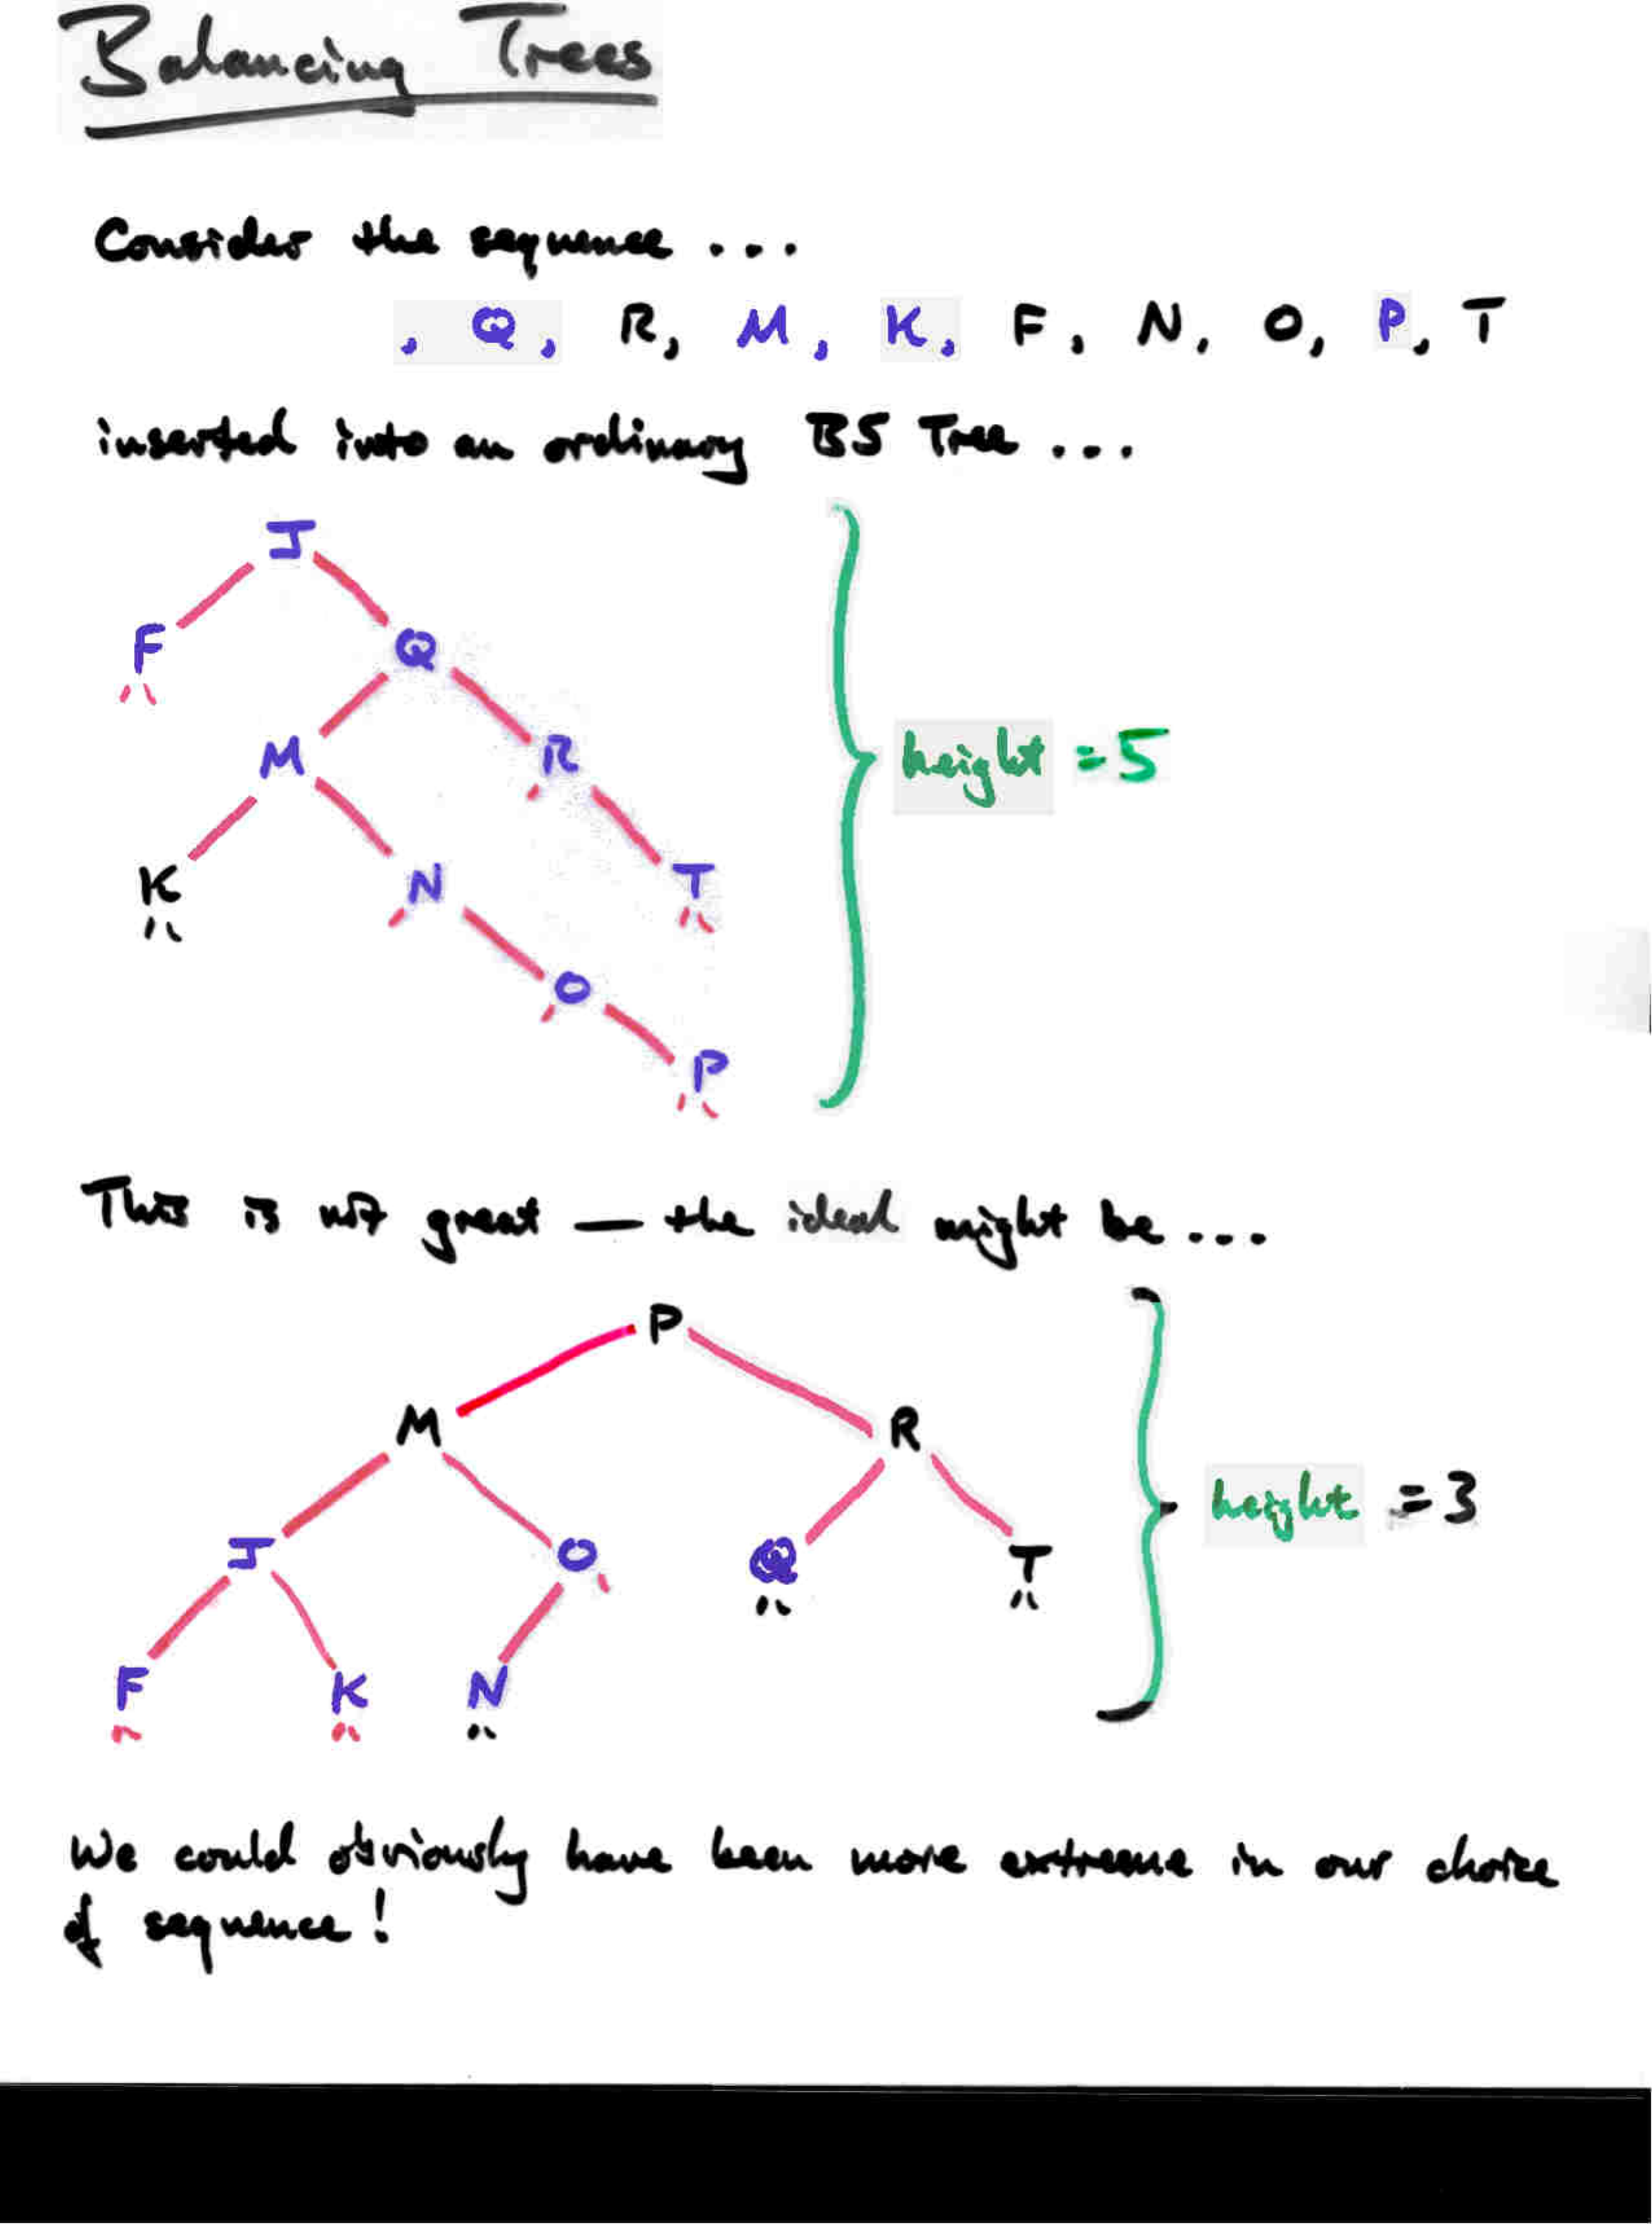 Balancing Trees
Consider the sequence ...
, Q, R, M, K, F, N, O, P, T
inserted into an ordinary BS Tree ...
J
F
Q
M
R
height = 5
K
N
T
O
P
This is not great — the ideal might be ...
P
M
R
J
O
Q
T
height = 3
F
K
N
We could obviously have been more extreme in our choice
of sequence!